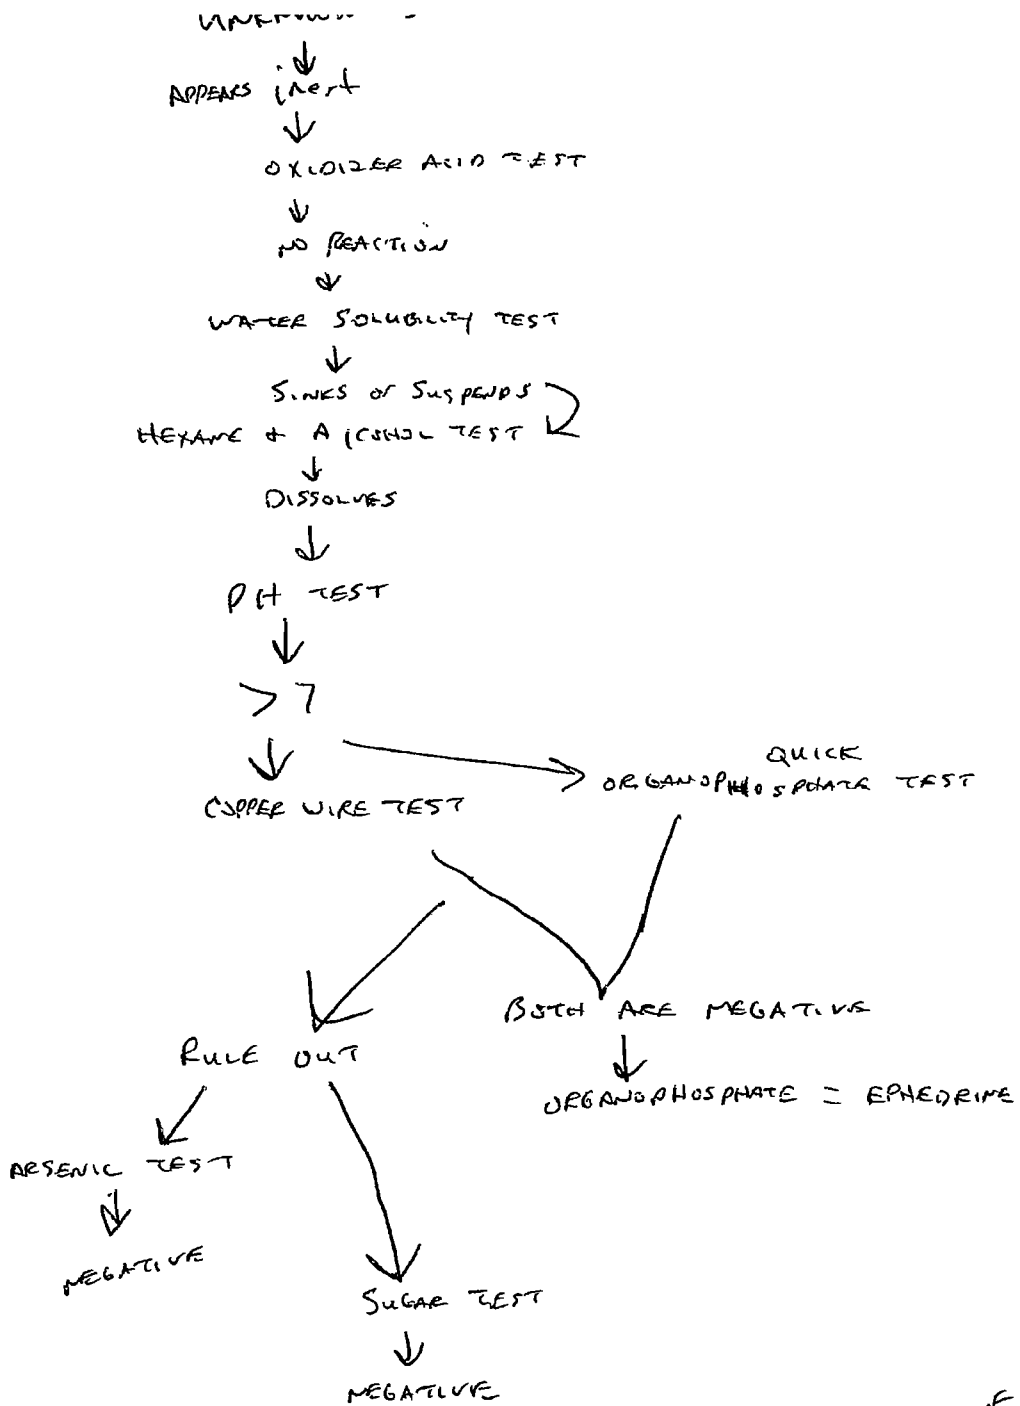 APPEARS inert
OXIDIZER ACID TEST
NO REACTION
WATER SOLUBILITY TEST
SINKS or SUSPENDS
HEXANE + ALCOHOL TEST
DISSOLVES
PH TEST
> 7
COPPER WIRE TEST
QUICK
ORGANOPHOSPHATE TEST
BOTH ARE NEGATIVE
ORGANOPHOSPHATE = EPHEDRINE
RULE OUT
ARSENIC TEST
NEGATIVE
SUGAR TEST
NEGATIVE